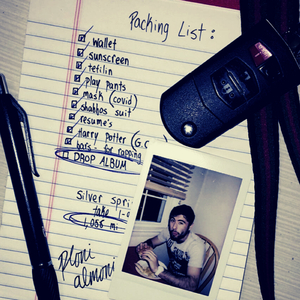 Packing List :
wallet
sunscreen
tefilin
play pants
mask (covid)
shabbos suit
resume's
Harry Potter (G.O
bars - for rapping
DROP ALBUM
silver spri
take 1-
1,055 mi
ploni
almoni